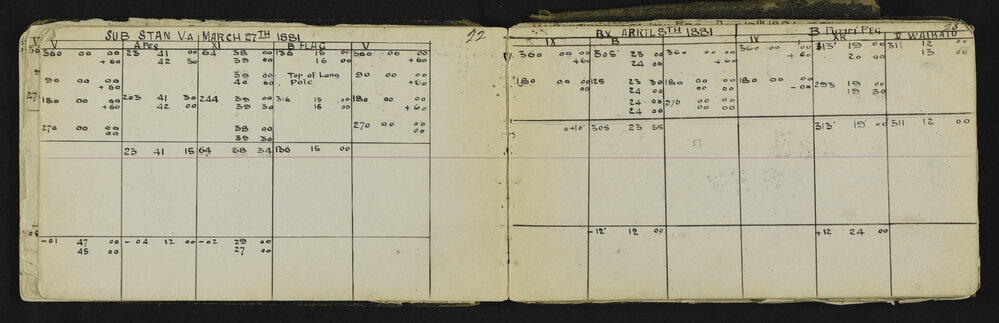 SUB STAN VA MARCH 27TH 1881 22
V A Peg XI B FLAG V
360 00 00 23 41 00 64 38 00 136 16 00 360 00 00
+60 42 30 39 00 16 00 +60
39 00 Top of Long
90 00 00 40 00 Pole 90 00 00
+60 +60
180 00 00 203 41 30 244 39 00 316 15 00 180 00 00
+60 42 00 39 30 16 00 +60
270 00 00 38 00 270 00 00
00 39 30 00
23 41 15 64 38 34 136 15 00
-01 47 00 -04 12 00 -02 29 00
45 00 27 00
IX B IX XR V WAIKATO
360 00 00 305 23 00 360 00 00 313 19 00 311 12 00
+60 24 00 +60 20 00 13 00
180 00 00 125 23 30 180 00 00 180 00 00 293 19 00
24 00 00 00 -00 19 30
24 00 270 00 00
24 00 00 00
0+10 305 23 35 313 19 00 311 12 00
-12 12 00 +12 24 00